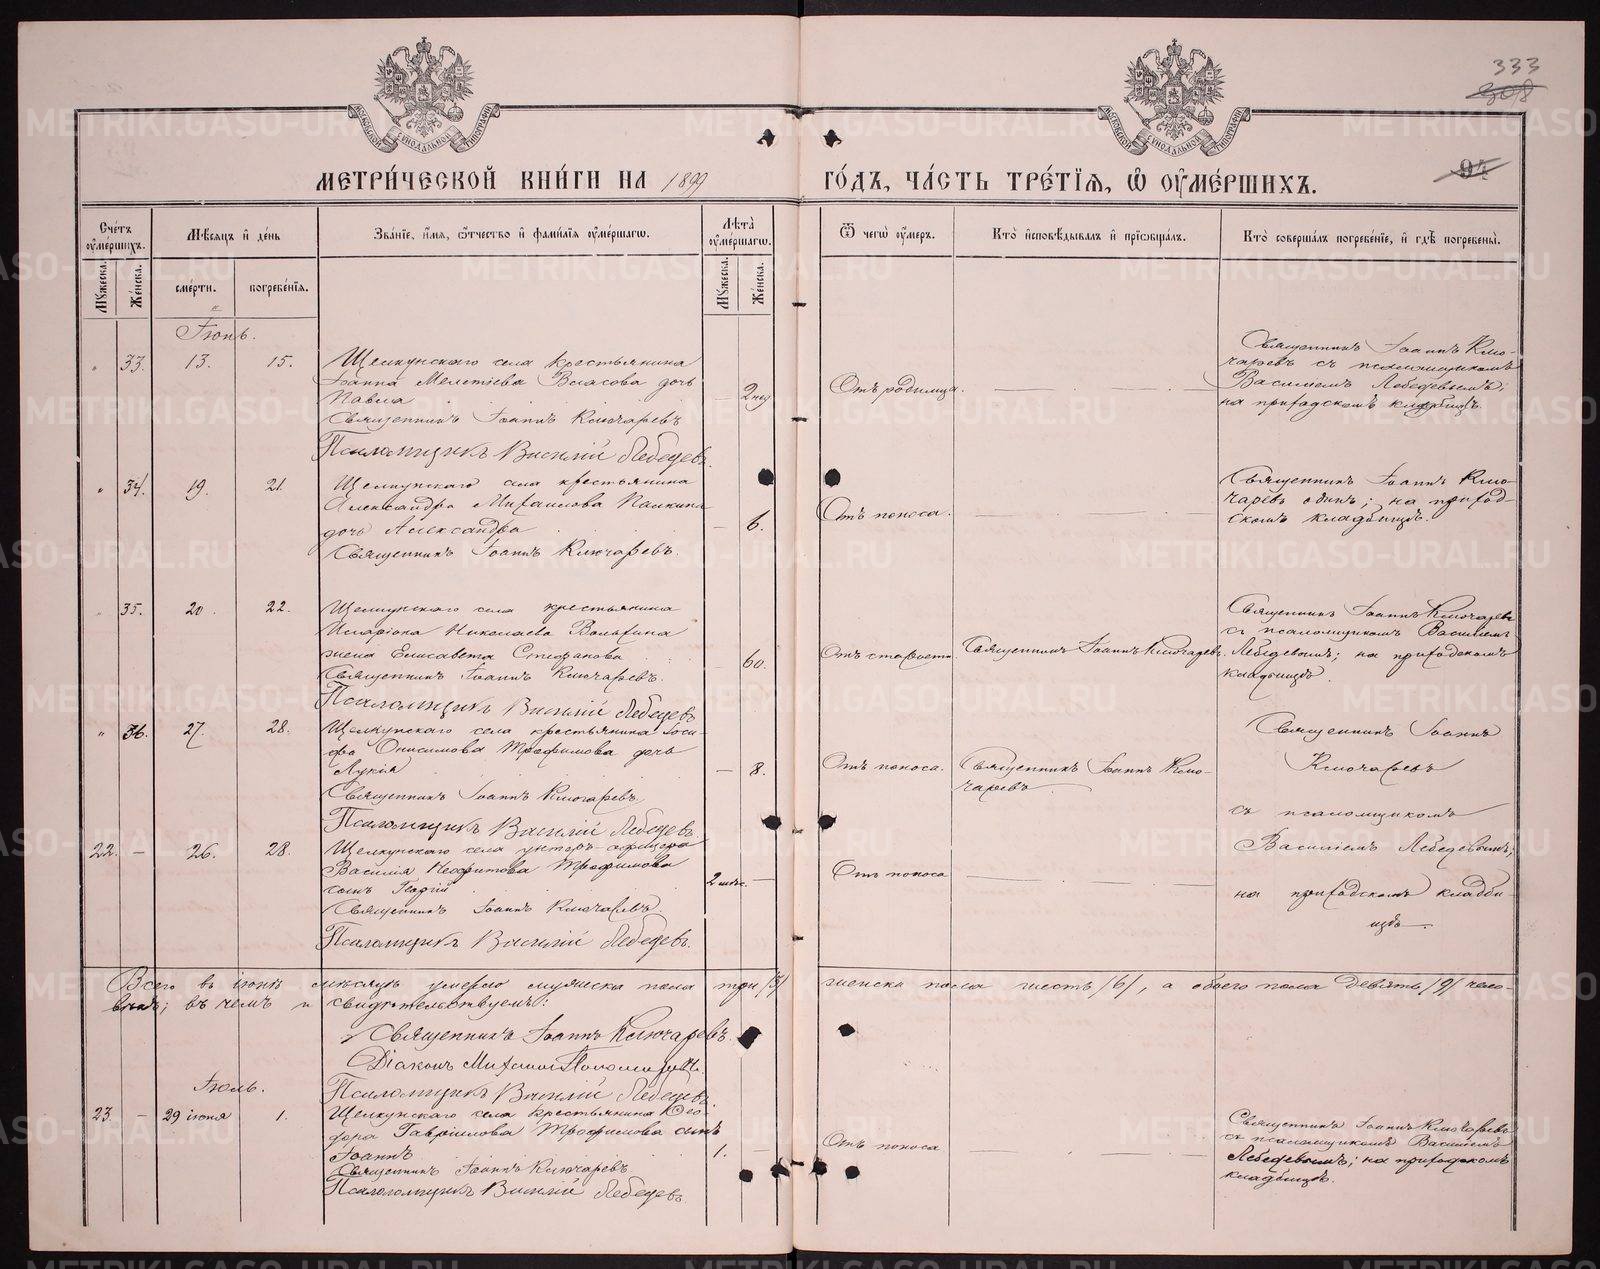 333
308
94
МОСКОВСКОЙ СѴНОДАЛЬНОЙ ТИПОГРАФІИ
МОСКОВСКОЙ СѴНОДАЛЬНОЙ ТИПОГРАФІИ
МЕТРИ́ЧЕСКОЙ КНИ́ГИ НА 1899
ГО́ДЪ, ЧА́СТЬ ТРЕ́ТІѦ, Ѡ҆ ОУ҆МЕ́РШИХЪ.
Сче́тъ оу҆ме́ршихъ.
Мѣ́сяцъ и҆ де́нь
Зва́ніе, и҆́мѧ, ѻ҆́тчество и҆ фами́лїѧ оу҆ме́ршагѡ.
Лѣ́та оу҆ме́ршагѡ.
Ѿ чегѡ̀ оу҆́меръ.
Кто̀ и҆сповѣ́дывалъ и҆ прїѡбща́лъ.
Кто̀ соверша́лъ погребе́нїе, и҆ гдѣ̀ погребены̀.
Мꙋ́жеска. Же́нска.
сме́рти. погребе́нїѧ.
Мꙋ́жеска. Же́нска.
Іюнь.
" 33. 13. 15.
Щелкунскаго села крестьянина
Іоанна Мелетіева Власова дочь
Павла
Священникъ Іоаннъ Ключаревъ
Псаломщикъ Василій Лебедевъ.
— 2 нед
Отъ родимца.
Священникъ Іоаннъ Клю-
чаревъ съ псаломщикомъ
Василіемъ Лебедевымъ;
на приходскомъ кладбищѣ.
" 34. 19. 21.
Щелкунскаго села крестьянина
Александра Михаилова Палкина
дочь Александра
Священникъ Іоаннъ Ключаревъ.
— 6.
Отъ поноса.
Священникъ Іоаннъ Клю-
чаревъ одинъ; на приход-
скомъ кладбищѣ.
" 35. 20. 22.
Щелкунскаго села крестьянина
Иларіона Николаева
жена Елисавета Стефанова
Священникъ Іоаннъ Ключаревъ.
Псаломщикъ Василій Лебедевъ
60.
Отъ старости
Священникъ Іоаннъ Ключаревъ.
Священникъ Іоаннъ Ключаревъ
съ псаломщикомъ Василіемъ
Лебедевымъ; на приходскомъ
кладбищѣ.
" 36. 27. 28.
Щелкунскаго села крестьянина Іоси-
фа Онисимова Трофимова дочь
Лукія
Священникъ Іоаннъ Ключаревъ
Псаломщикъ Василій Лебедевъ.
— 8.
Отъ поноса.
Священникъ Іоаннъ Клю-
чаревъ
Священникъ Іоаннъ
Ключаревъ
съ псаломщикомъ
Василіемъ Лебедевымъ;
на приходскомъ кладби-
щѣ.
22. — 26. 28.
Щелкунскаго села унтеръ-офицера
Василія Неофитова Трофимова
сынъ Георгій
Священникъ Іоаннъ Ключаревъ.
Псаломщикъ Василій Лебедевъ.
2 мѣс. —
Отъ поноса
Всего въ іюнѣ мѣсяцѣ умерло мужеска пола три /3/ женска пола шесть /6/, а обоего пола девять /9/ чело-
вѣкъ; въ чемъ и свидѣтельствуемъ:
Священникъ Іоаннъ Ключаревъ.
Діаконъ Михаилъ Пономаревъ.
Псаломщикъ Василій Лебедевъ.
Іюль.
23. — 29 іюня 1.
Щелкунскаго села крестьянина Ѳео-
дора Гавріилова Трофимова сынъ
Іоаннъ
Священникъ Іоаннъ Ключаревъ.
Псаломщикъ Василій Лебедевъ.
1. —
Отъ поноса
Священникъ Іоаннъ Ключаревъ
съ псаломщикомъ Василіемъ
Лебедевымъ; на приходскомъ
кладбищѣ.
METRIKI.GASO-URAL.RU